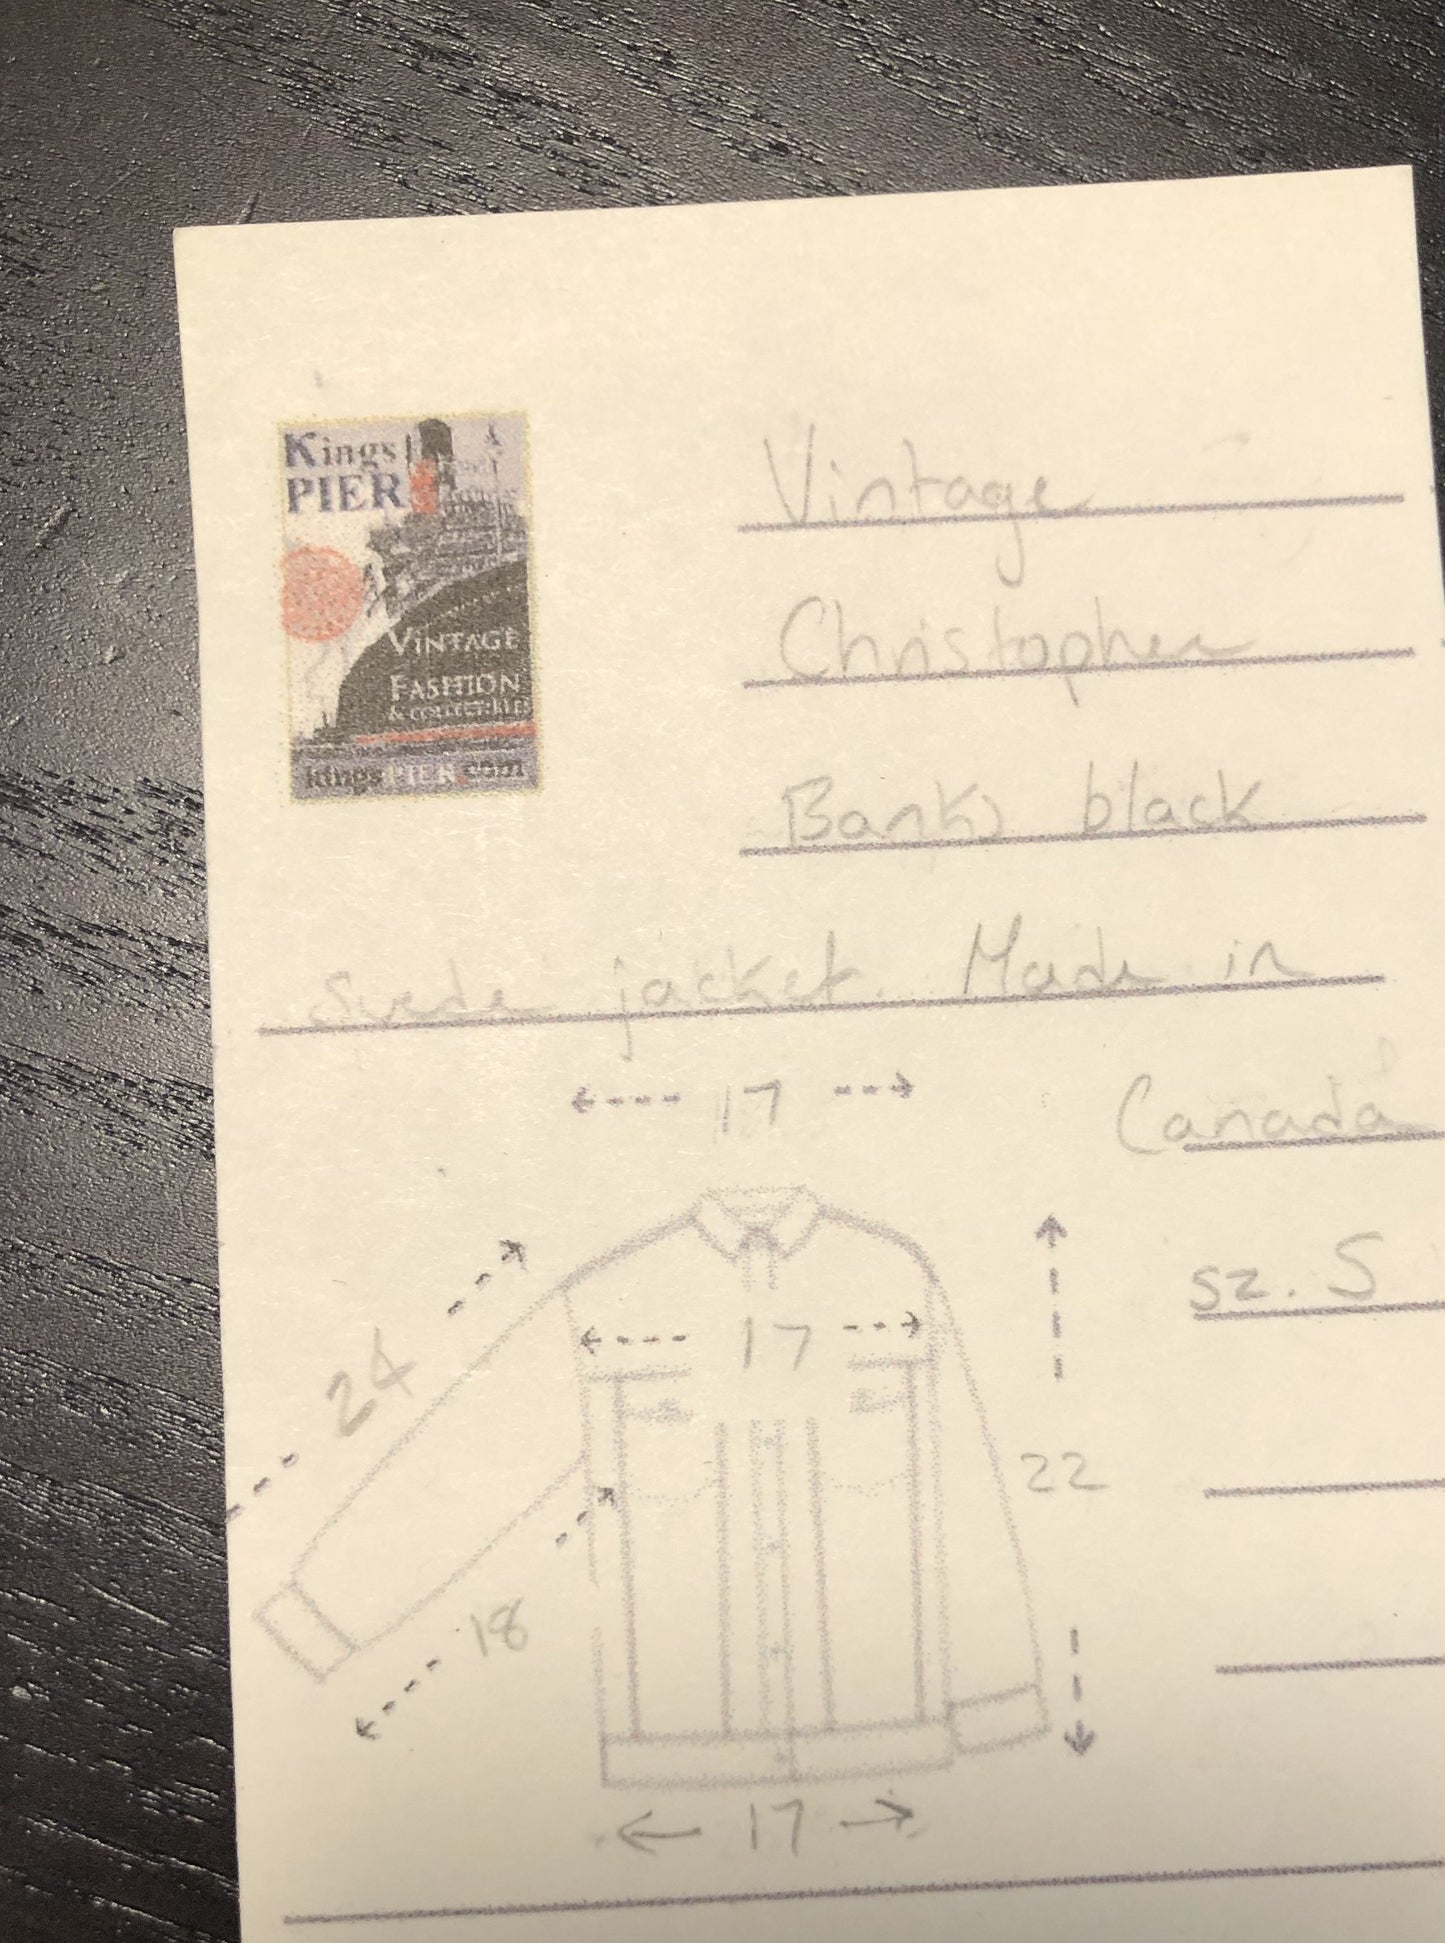 Kings
PIER
VINTAGE
FASHION
& COLLECTIBLES
kingsPIER.com
Vintage
Christopher
Banks black
Suede jacket. Made in
Canada
sz. S
17
17
24
22
18
17